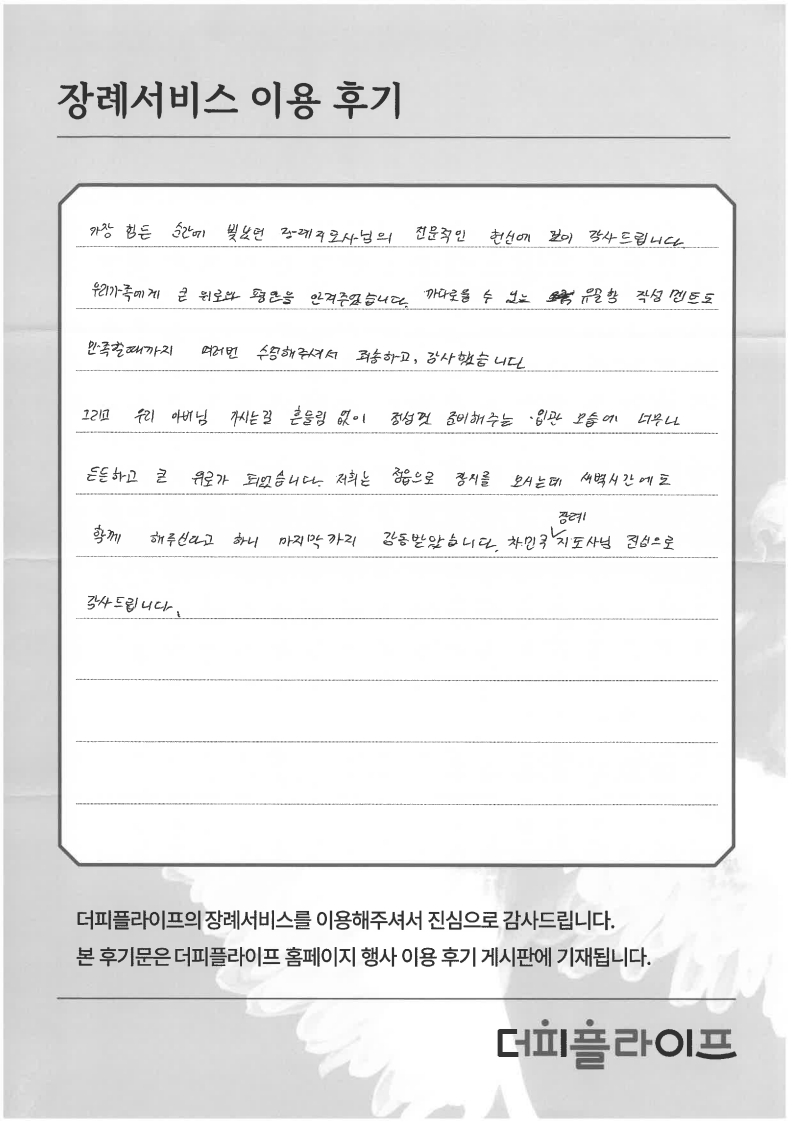 장례서비스 이용 후기
가장 힘든 순간에 빛났던 장례지도사님의 전문적인 헌신에 깊이 감사드립니다.
우리가족에게 큰 위로와 평안을 안겨주었습니다. 까다로울 수 있는 유골함 작성 멘트도
만족할때까지 여러번 수정해주셔서 죄송하고, 감사했습니다
그리고 우리 아버님 가시는길 흔들림 없이 정성껏 준비해주는 입관 모습에 너무나
든든하고 큰 위로가 되었습니다. 저희는 정읍으로 장지를 모시는데 새벽시간에도
함께 해주신다고 하니 마지막까지 감동받았습니다. 차민국 장례지도사님 진심으로
감사드립니다.
더피플라이프의 장례서비스를 이용해주셔서 진심으로 감사드립니다.
본 후기문은 더피플라이프 홈페이지 행사 이용 후기 게시판에 기재됩니다.
더피플라이프